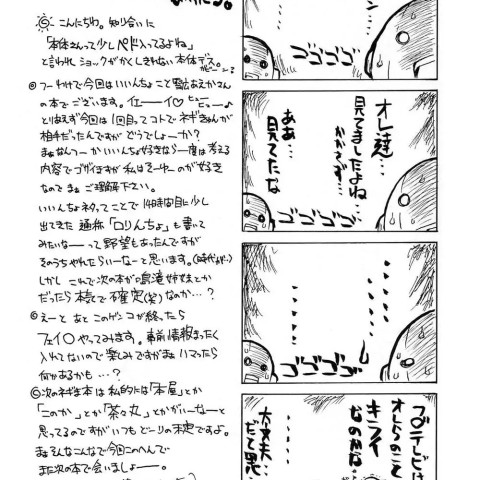 こんにちわ。知り合いに
「本体さんって少しペド入ってるよね」
と言われショックがかくしきれない本体デス。
つーわけで今回はいいんちょこと雪広あやかさん
の本でございます。イエーイ♡
とりあえず今回は1回目ってコトでネギきゅんが
相手だったんですがどうでしょーか?
まぁなんつーかいいんちょ好きなら一度は考える
内容でゴザイますが私はそーゆーのが好き
なのでまぁご理解下さい。
いいんちょネタってことで14時間目に少し
出てきた通称「ロリんちょ」も書いて
みたいなーって野望もあったんですが
そのうちやれたらいーなーと思います。
しかしこれで次の本が鳴滝姉妹とか
だったら本気で確定(笑)なのか…?
えーとあとこのゲンコが終ったら
フェイ〇やってみます。事前情報まったく
入れてないので楽しみですがまぁハマったら
何かあるかも…?
次のネギま本は私的には「本屋」とか
「このか」とか「茶々丸」とかがいーなーと
思ってるのですがいつもどーりの未定ですよ。
まぁそんなこんなで今回この〜んで
また次の本で会いましょーー。
ゴゴゴゴ
オレ達…
見てましたよね…
かかさず…
ああ…
見てたな
ゴゴゴゴ
ゴゴゴゴ
フジテレビは
オレらのこと
キライ
なのかな…
大丈夫…
だと思